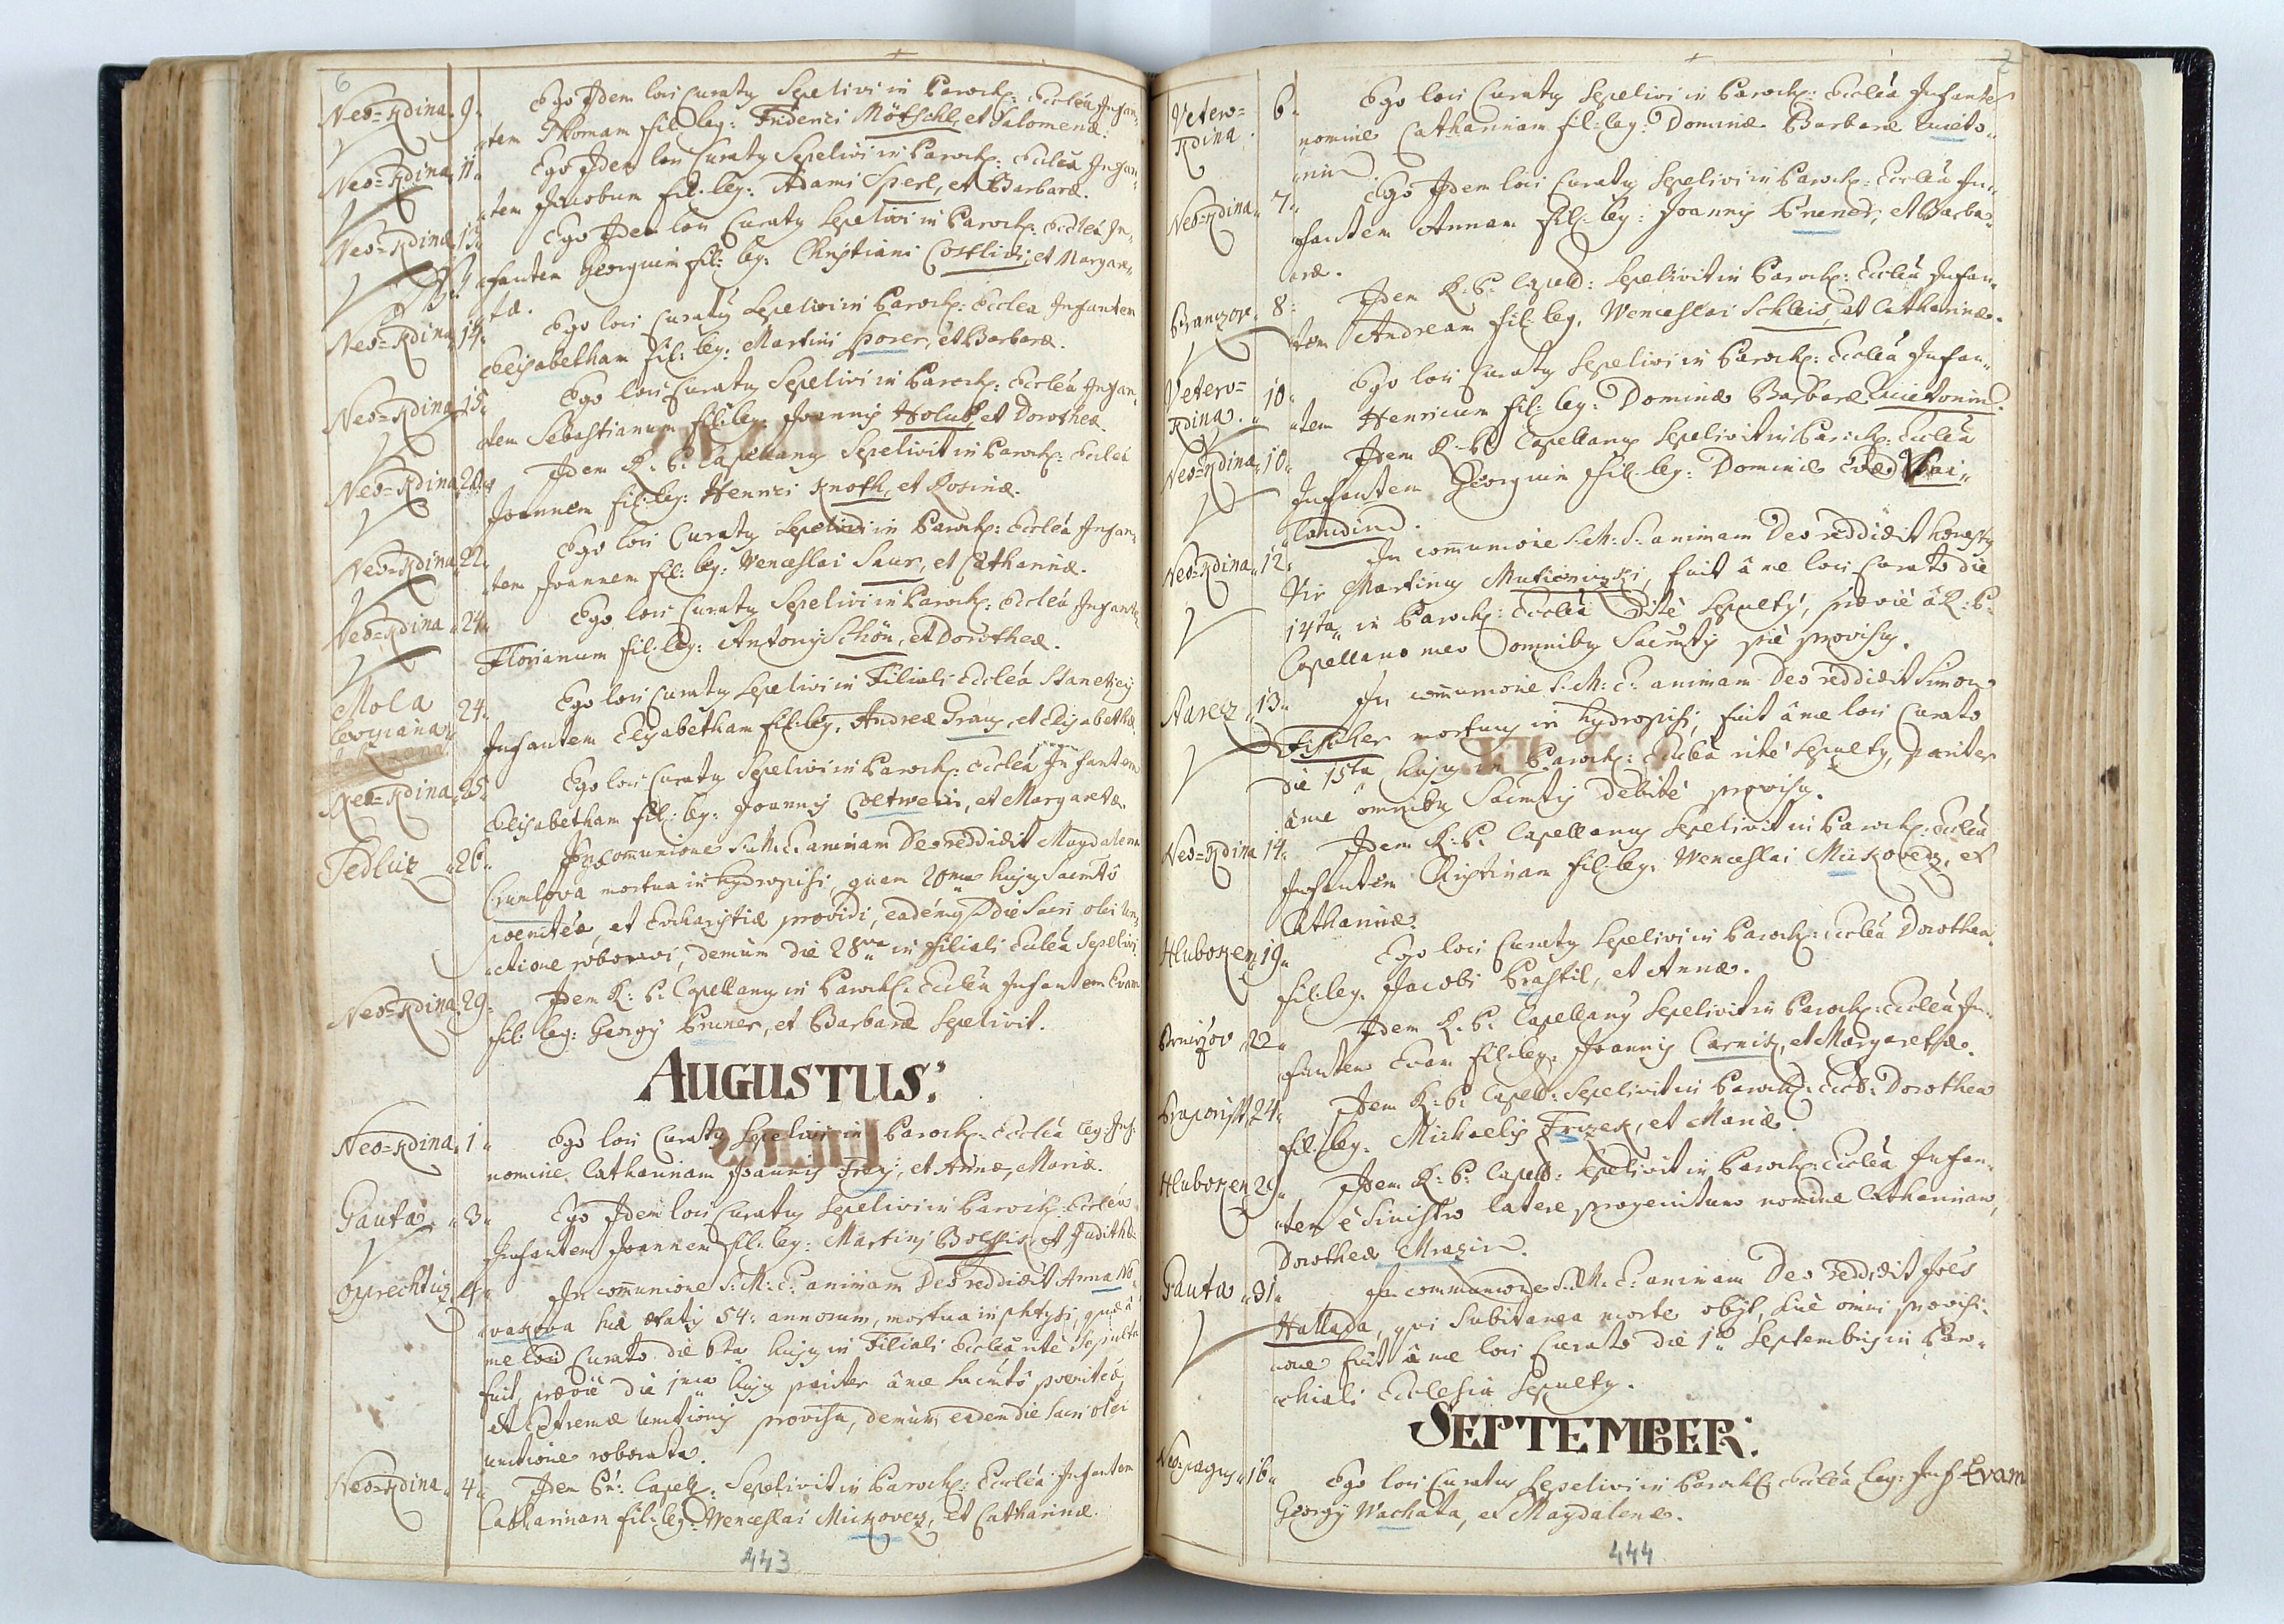 6
Neo=Rdina. 9. Ego Idem loci Curatus Sepelivi in Paroch: Eccleā Infan„
„tem Thomam fil: leg: Friderici Mötschl, et Salomenæ.
Neo=Rdina. 11. Ego Idem loci Curatus Sepelivi in Paroch: Eccleā Infan„
„tem Jacobum fil: leg: Adami Sperl, et Barbaræ.
Neo=Rdina. 13. Ego Idem loci Curatus Sepelivi in Paroch: Eccleā In„
„fantem Georgium fil: leg: Christiani et Margare„
„tæ.
Neo=Rdina. 14. Ego loci Curatus Sepelivi in Paroch: Ecclea Infantem
Elisabetham fil: leg: Martini Porer, et Barbaræ.
Neo=Rdina. 15. Ego loci Curatus Sepelivi in Paroch: Eccleā Infan„
„tem Sebastianum fil: leg: Joannis Holub, et Dorotheæ.
Neo=Rdina. 20. Idem R: P: Capellanus Sepelivit in Paroch: Eccleā
Joannem fil: leg: Henrici Knoth, et Rosinæ.
Neo=Rdina. 22. Ego loci Curatus Sepelivi in Paroch: Eccleā Infan„
„tem Joannem fil: leg: Wenceslai Saur, et Catharinæ.
Neo=Rdina. 24. Ego loci Curatus Sepelivi in Paroch: Eccleā Infantem
Florianum fil: leg: Antonij Schön, et Dorotheæ.
Mola 24. Ego loci Curatus Sepelivi in Filiali Eccleā
Infantem Elisabetham fil: leg: Andreæ Graus, et Elisabethæ.
Neo=Rdina. 25. Ego loci Curatus Sepelivi in Paroch: Eccleā Infantem
Elisabetham fil: leg: Joannis et Margaretæ.
Jedlicz 26. In communione S: M: E: animam Deo reddidit Magdalena
Crumlova mortua in hydropisi, quam 20ma hujus Sacmtō
poenitēæ, et Eucharistiæ providi, eademque die Sacri olei un„
„ctione roboravi, demum die 28va in filiali Eccleā Sepelivi.
Neo=Rdina. 29. Idem R: P: Capellanus in Paroch: Eccleā Infantem Evam
fil: leg: Georgij Pruner, et Barbaræ Sepelivit.
AUGUSTUS:
Neo=Rdina. 1. Ego loci Curatus Sepelivi in Paroch: Eccleā leg: Inf:
nomine Catharinam Joannis Frey, et Annæ Mariæ.
Gauta. 3. Ego Idem loci Curatus Sepelivi in Paroch: Eccleā
Infantem Joannem fil: leg: Martini et Judithæ.
Oprechticz. 4. In communione S: M: E: animam Deo reddidit Anna No„
„vakova suæ ætatis 54: annorum, mortua in phtysi, quæ â
me loci Curato die 6ta hujus in Filiali Eccleā rite Sepulta
fuit, prævie die 1ma hujus pariter â me Sacmtō poenitēæ,
et Extremæ Unctionis provisa, demum eadem die Sacri olei
unctione roborata.
Neo=Rdina. 4. Idem Capell: Sepelivit in Paroch: Eccleā Infantem
Catharinam fil: leg: Wenceslai Mickovecz, et Catharinæ.
443
7
Vetero= 6. Ego loci Curatus Sepelivi in Paroch: Eccleā Infantem
Rdina. nomine Catharinam fil: leg: Dominæ Barbaræ Quieto„
„nin.
Neo=Rdina. 7. Ego Idem loci Curatus Sepelivi in Paroch: Eccleā In„
„fantem Annam fil: leg: Joannis Pruner, et Barba„
„ræ.
8. Idem R: P: Capell: Sepelivit in Paroch: Eccleā Infan„
„tem Andream fil: leg: Wenceslai Schleis, et Catharinæ.
Vetero= 10. Ego loci Curatus Sepelivi in Paroch: Eccleā Infan„
Rdina. „tem Henricum fil: leg: Dominæ Barbaræ Quietonin.
Neo=Rdina. 10. Idem R: P: Capellanus Sepelivit in Paroch: Eccleā
Infantem Georgium fil: leg:
Neo=Rdina. 12. In communione S: M: E: animam Deo reddidit honestus
Vir Martinus fuit â me loci Curato die
14ta in Paroch: Eccleā rite Sepultus, prævie â R: P:
Capellano meo omnibus Sacmtis pie provisus.
13. In communione S: M: E: animam Deo reddidit Simon
Fischer mortuus in hydropisi, fuit â me loci Curato
die 15ta hujus in Paroch: Eccleā rite Sepultus, pariter
â me omnibus Sacmtis debite provisus.
Neo=Rdina 14. Idem R: P: Capellanus Sepelivit in Paroch: Eccleā
Infantem Christinam fil: leg: Wenceslai Mickovecz, et
Catharinæ.
Hluboken 19. Ego loci Curatus Sepelivi in Paroch: Eccleā Dorotheam
fil: leg: Jacobi Prastil, et Annæ.
22. Idem R: P: Capellanus Sepelivit in Paroch: Eccleā In„
„fantem Evam fil: leg: Joannis et Margarethæ.
24. Idem R: P: Capell: Sepelivit in Paroch: Eccl: Dorotheam
fil: leg: Michaelis Frizek, et Mariæ.
Hluboken 29. Idem R: P: Capell: Sepelivit in Paroch: Eccleā Infan„
„tem è Sinistro latere progenitum nomine Catharinam,
Dorotheæ Mrazin.
Gauta 31. In communione S: M: E: animam Deo reddidit Joēs
Hallada, qui Subitanea morte obijt, sine omni provisi„
„one fuit â me loci Curato die 1o Septembris in Paro„
„chiali Ecclesia Sepultus.
SEPTEMBER:
Neo=pagus 16. Ego loci Curatus Sepelivi in Paroch: Eccleā leg: Inf Evam
Georgij Wachata, et Magdalenæ.
444